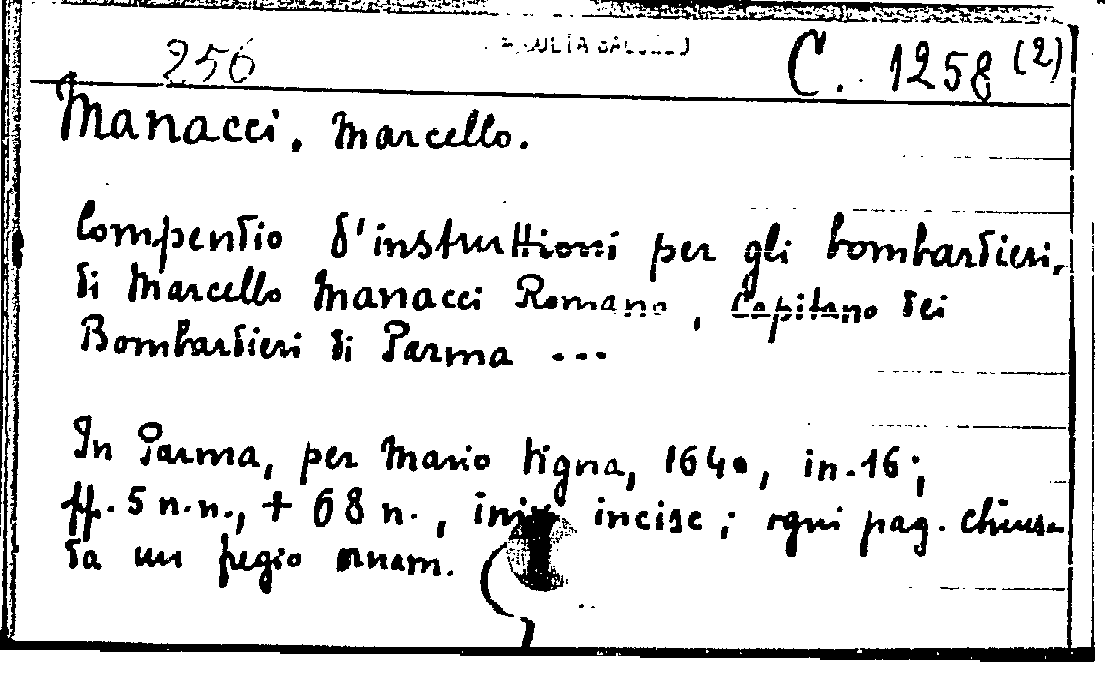 256 C. 1258 (2)
Manacci, Marcello.
Compendio d'instruttioni per gli bombardieri,
di Marcello Manacci Romano, Capitano dei
Bombardieri di Parma ...
In Parma, per Mario Vigna, 1640, in-16;
ff. 5 n.n., + 68 n., iniz. incise; ogni pag. chiusa
da un fregio ornam.